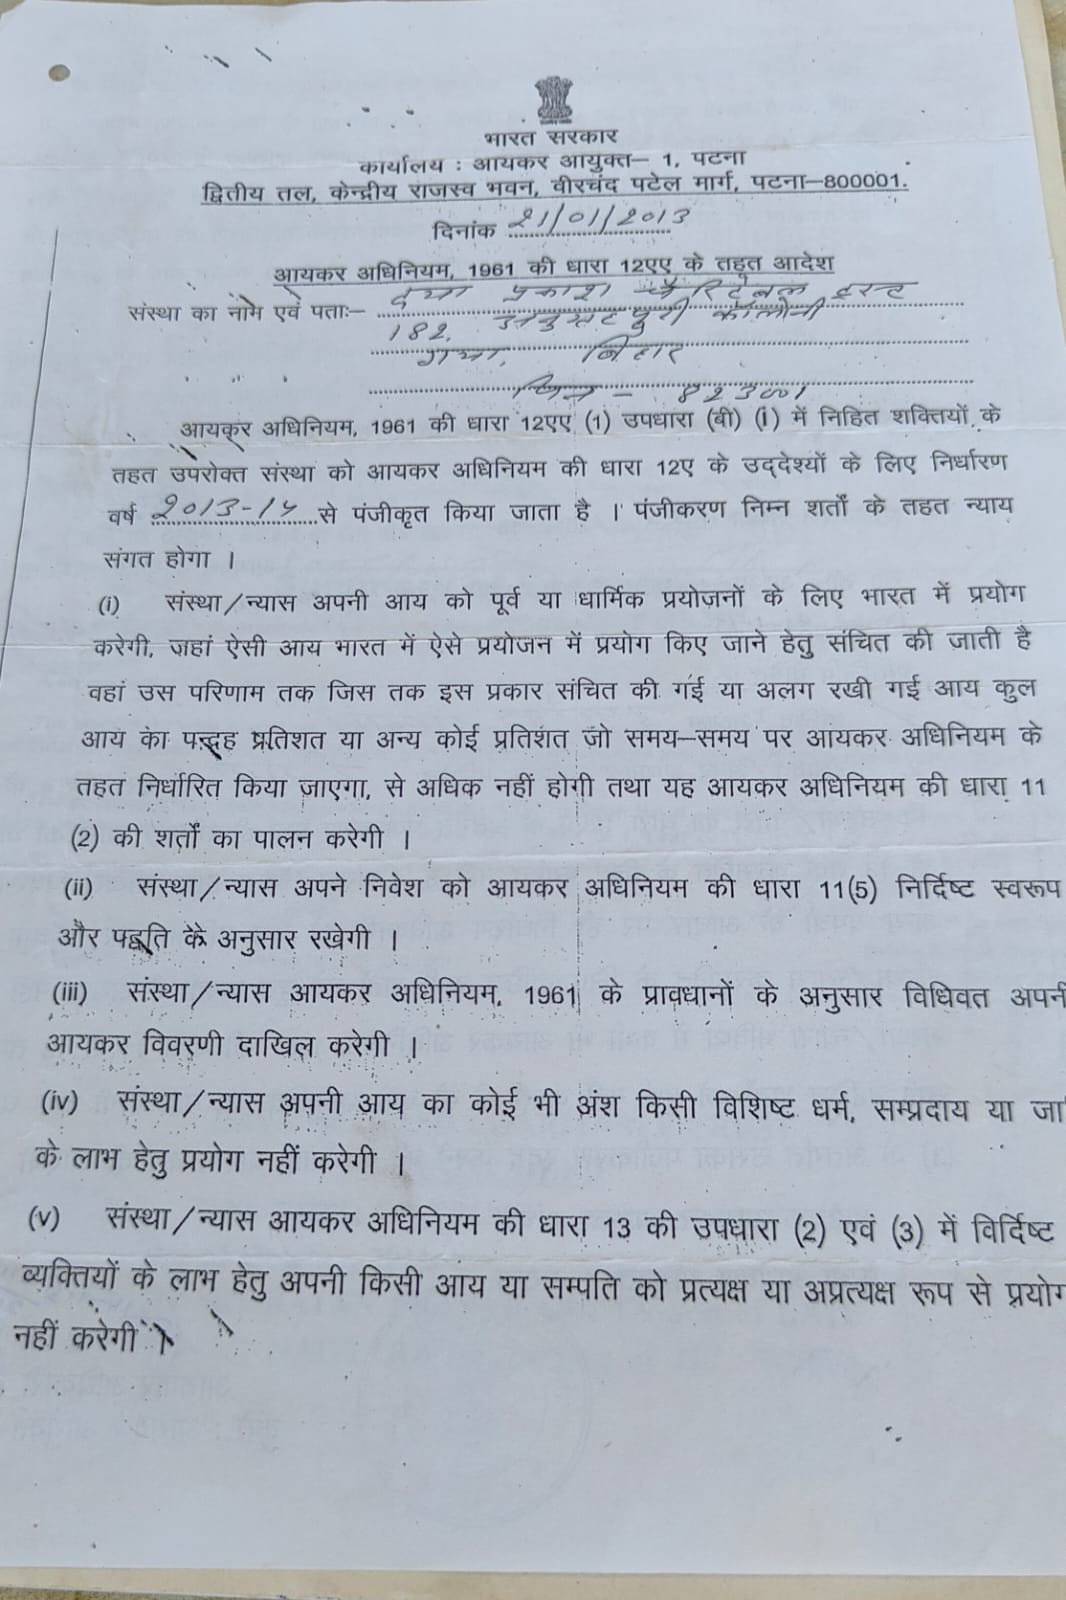 भारत सरकार
कार्यालय : आयकर आयुक्त– 1, पटना
द्वितीय तल, केन्द्रीय राजस्व भवन, वीरचंद पटेल मार्ग, पटना–800001.
दिनांक 21/01/2013
आयकर अधिनियम, 1961 की धारा 12एए के तहत आदेश
संस्था का नाम एवं पताः– दया प्रकाश चैरिटेबल ट्रस्ट
182, पुरी कॉलोनी
गया, बिहार
पिन – 823001
आयकर अधिनियम, 1961 की धारा 12एए (1) उपधारा (बी) (i) में निहित शक्तियों के
तहत उपरोक्त संस्था को आयकर अधिनियम की धारा 12ए के उद्देश्यों के लिए निर्धारण
वर्ष 2013-14 से पंजीकृत किया जाता है । पंजीकरण निम्न शर्तों के तहत न्याय
संगत होगा ।
(i) संस्था/न्यास अपनी आय को पूर्व या धार्मिक प्रयोजनों के लिए भारत में प्रयोग
करेगी, जहां ऐसी आय भारत में ऐसे प्रयोजन में प्रयोग किए जाने हेतु संचित की जाती है
वहां उस परिणाम तक जिस तक इस प्रकार संचित की गई या अलग रखी गई आय कुल
आय का पन्द्रह प्रतिशत या अन्य कोई प्रतिशत जो समय–समय पर आयकर अधिनियम के
तहत निर्धारित किया जाएगा, से अधिक नहीं होगी तथा यह आयकर अधिनियम की धारा 11
(2) की शर्तों का पालन करेगी ।
(ii) संस्था/न्यास अपने निवेश को आयकर अधिनियम की धारा 11(5) निर्दिष्ट स्वरूप
और पद्धति के अनुसार रखेगी ।
(iii) संस्था/न्यास आयकर अधिनियम, 1961 के प्रावधानों के अनुसार विधिवत अपनी
आयकर विवरणी दाखिल करेगी ।
(iv) संस्था/न्यास अपनी आय का कोई भी अंश किसी विशिष्ट धर्म, सम्प्रदाय या जा
के लाभ हेतु प्रयोग नहीं करेगी ।
(v) संस्था/न्यास आयकर अधिनियम की धारा 13 की उपधारा (2) एवं (3) में विर्दिष्ट
व्यक्तियों के लाभ हेतु अपनी किसी आय या सम्पति को प्रत्यक्ष या अप्रत्यक्ष रूप से प्रयोग
नहीं करेगी ।